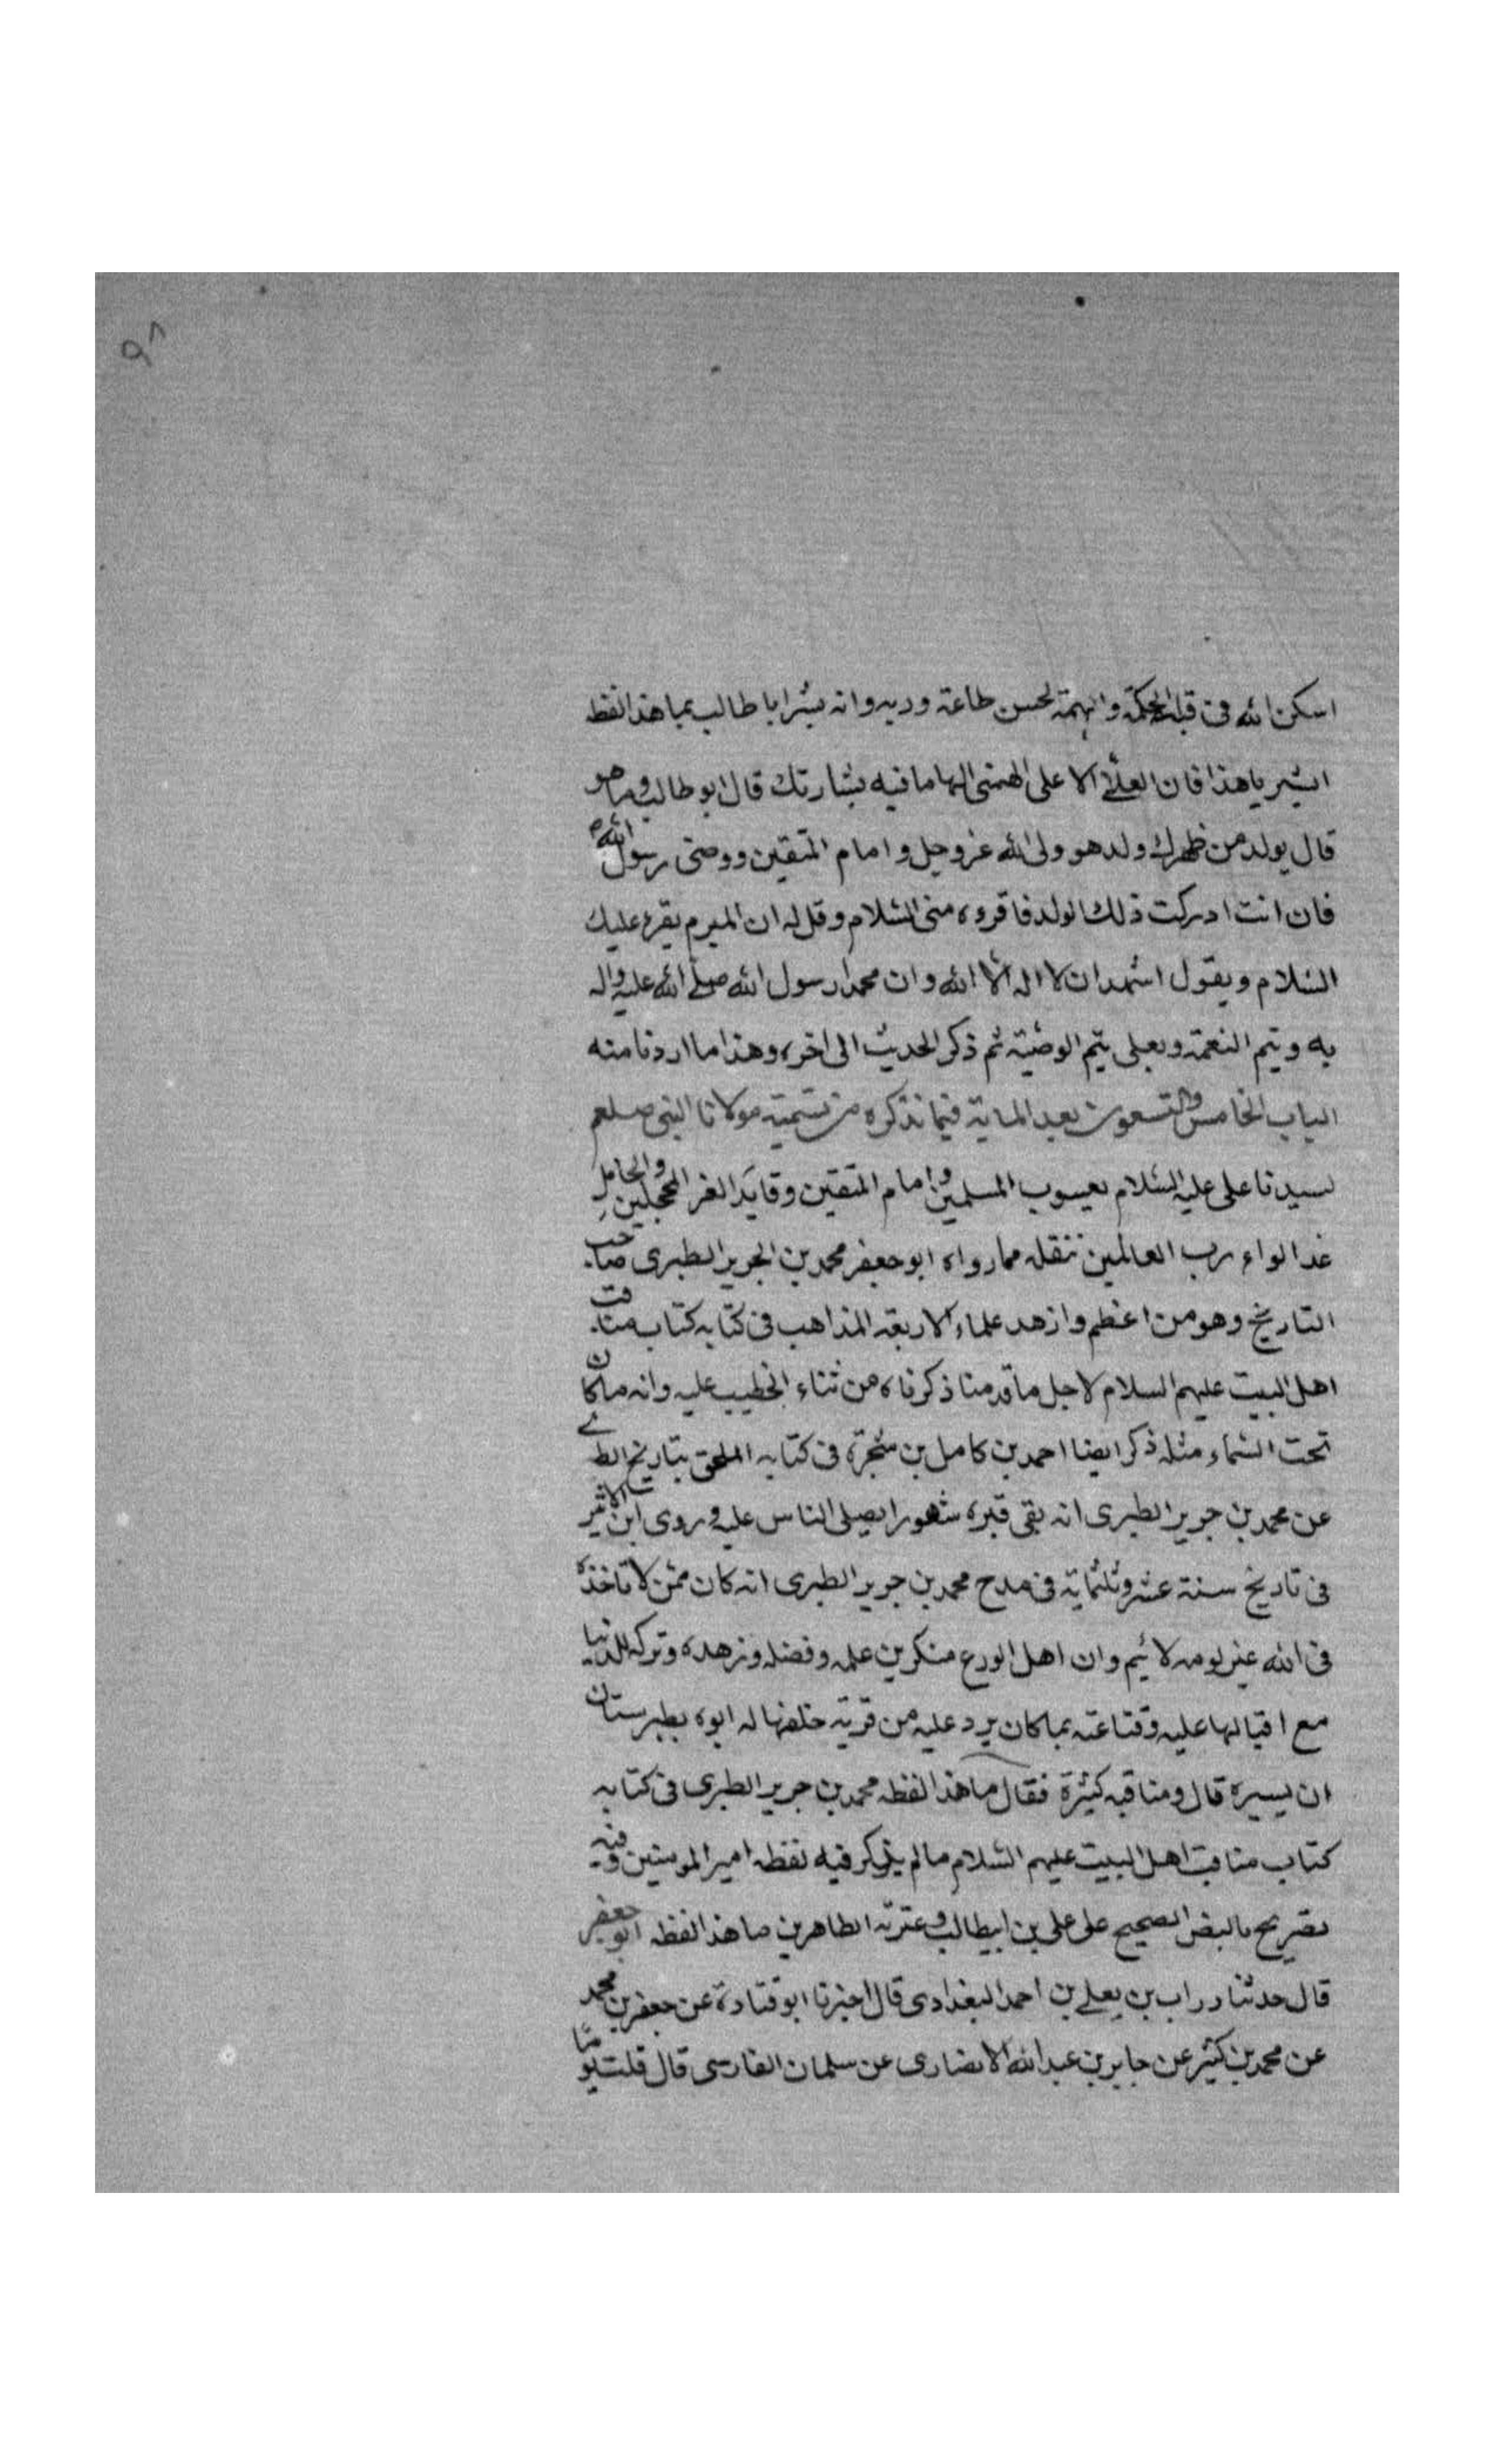 ٩٨
اسكن الله فى قبله الحكمة والهمه لحسن طاعته وربه وانه بشر ابا طالب بما هذا لفظه
ابشر يا هذا فان العلى الاعلى الهمنى الهاما فيه بشارتك قال ابو طالب وما هو
قال يولد من ظهرك ولد هو ولى الله عز وجل وامام المتقين ووصى رسول الله ص
فان انت ادركت ذلك الولد فاقروه منى السلام وقل له ان المبرم يقرء عليك
السلام ويقول اشهد ان لا اله الا الله وان محمدا رسول الله صلى الله عليه واله
به ويتم النعمة وبعلى يتم الوصية ثم ذكر الحديث الى اخره وهذا ما اردنا منه
الباب الخامس والتسعون بعد الماية فيما نذكره من تسميه مولانا النبى صلعم
لسيدنا على عليه السلام يعسوب المسلمين وامام المتقين وقايد الغر المحجلين والحامل
غدا لواء رب العالمين ننقله مما رواه ابو جعفر محمد بن الجرير الطبرى صاحب
التاريخ وهو من اعظم وازهد علماء الاربعة المذاهب فى كتابه كتاب مناقب
اهل البيت عليهم السلام لاجل ما قدمنا ذكرناه من ثناء الخطيب عليه وانه ما كان
تحت السماء مثله ذكر ايضا احمد بن كامل بن شجرة فى كتابه الملحق بتاريخ الطبرى
عن محمد بن جرير الطبرى انه بقى قبره شهورا يصلى الناس عليه وروى ابن الاثير
فى تاريخ سنة عشر وثلثماية فى مدح محمد بن جرير الطبرى انه كان ممن لا تاخذه
فى الله عز لومه لائيم وان اهل الورع منكرين علمه وفضله وزهده وتركه للدنيا
مع اقبالها عليه وقناعته بما كان يرد عليه من قرية خلفها له ابوه بطبرستان
ان يسيرة قال ومناقبه كثيرة فقال ما هذا لفظه محمد بن جرير الطبرى فى كتابه
كتاب مناقب اهل البيت عليهم السلام ما لم يذكر فيه لفظه امير المومنين وفيه
تصريح بالنص الصحيح على على بن ابيطالب وعترته الطاهرين ما هذا لفظه ابو جعفر
قال حدثنا زراب بن يعلى بن احمد البغدادى قال اخبرنا ابو قتادة عن جعفر بن محمد
عن محمد بن كثير عن جابر بن عبد الله الانصارى عن سلمان الفارسى قال قلت يوما